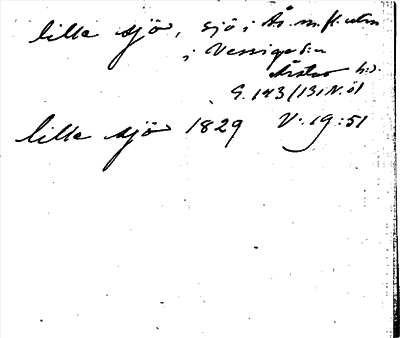 lilla sjö, sjö i Ås m. fl. utm
i Vessige sn
Årstad hd.
G. 143/131 N. öl
lilla sjö 1829 V: 19:51